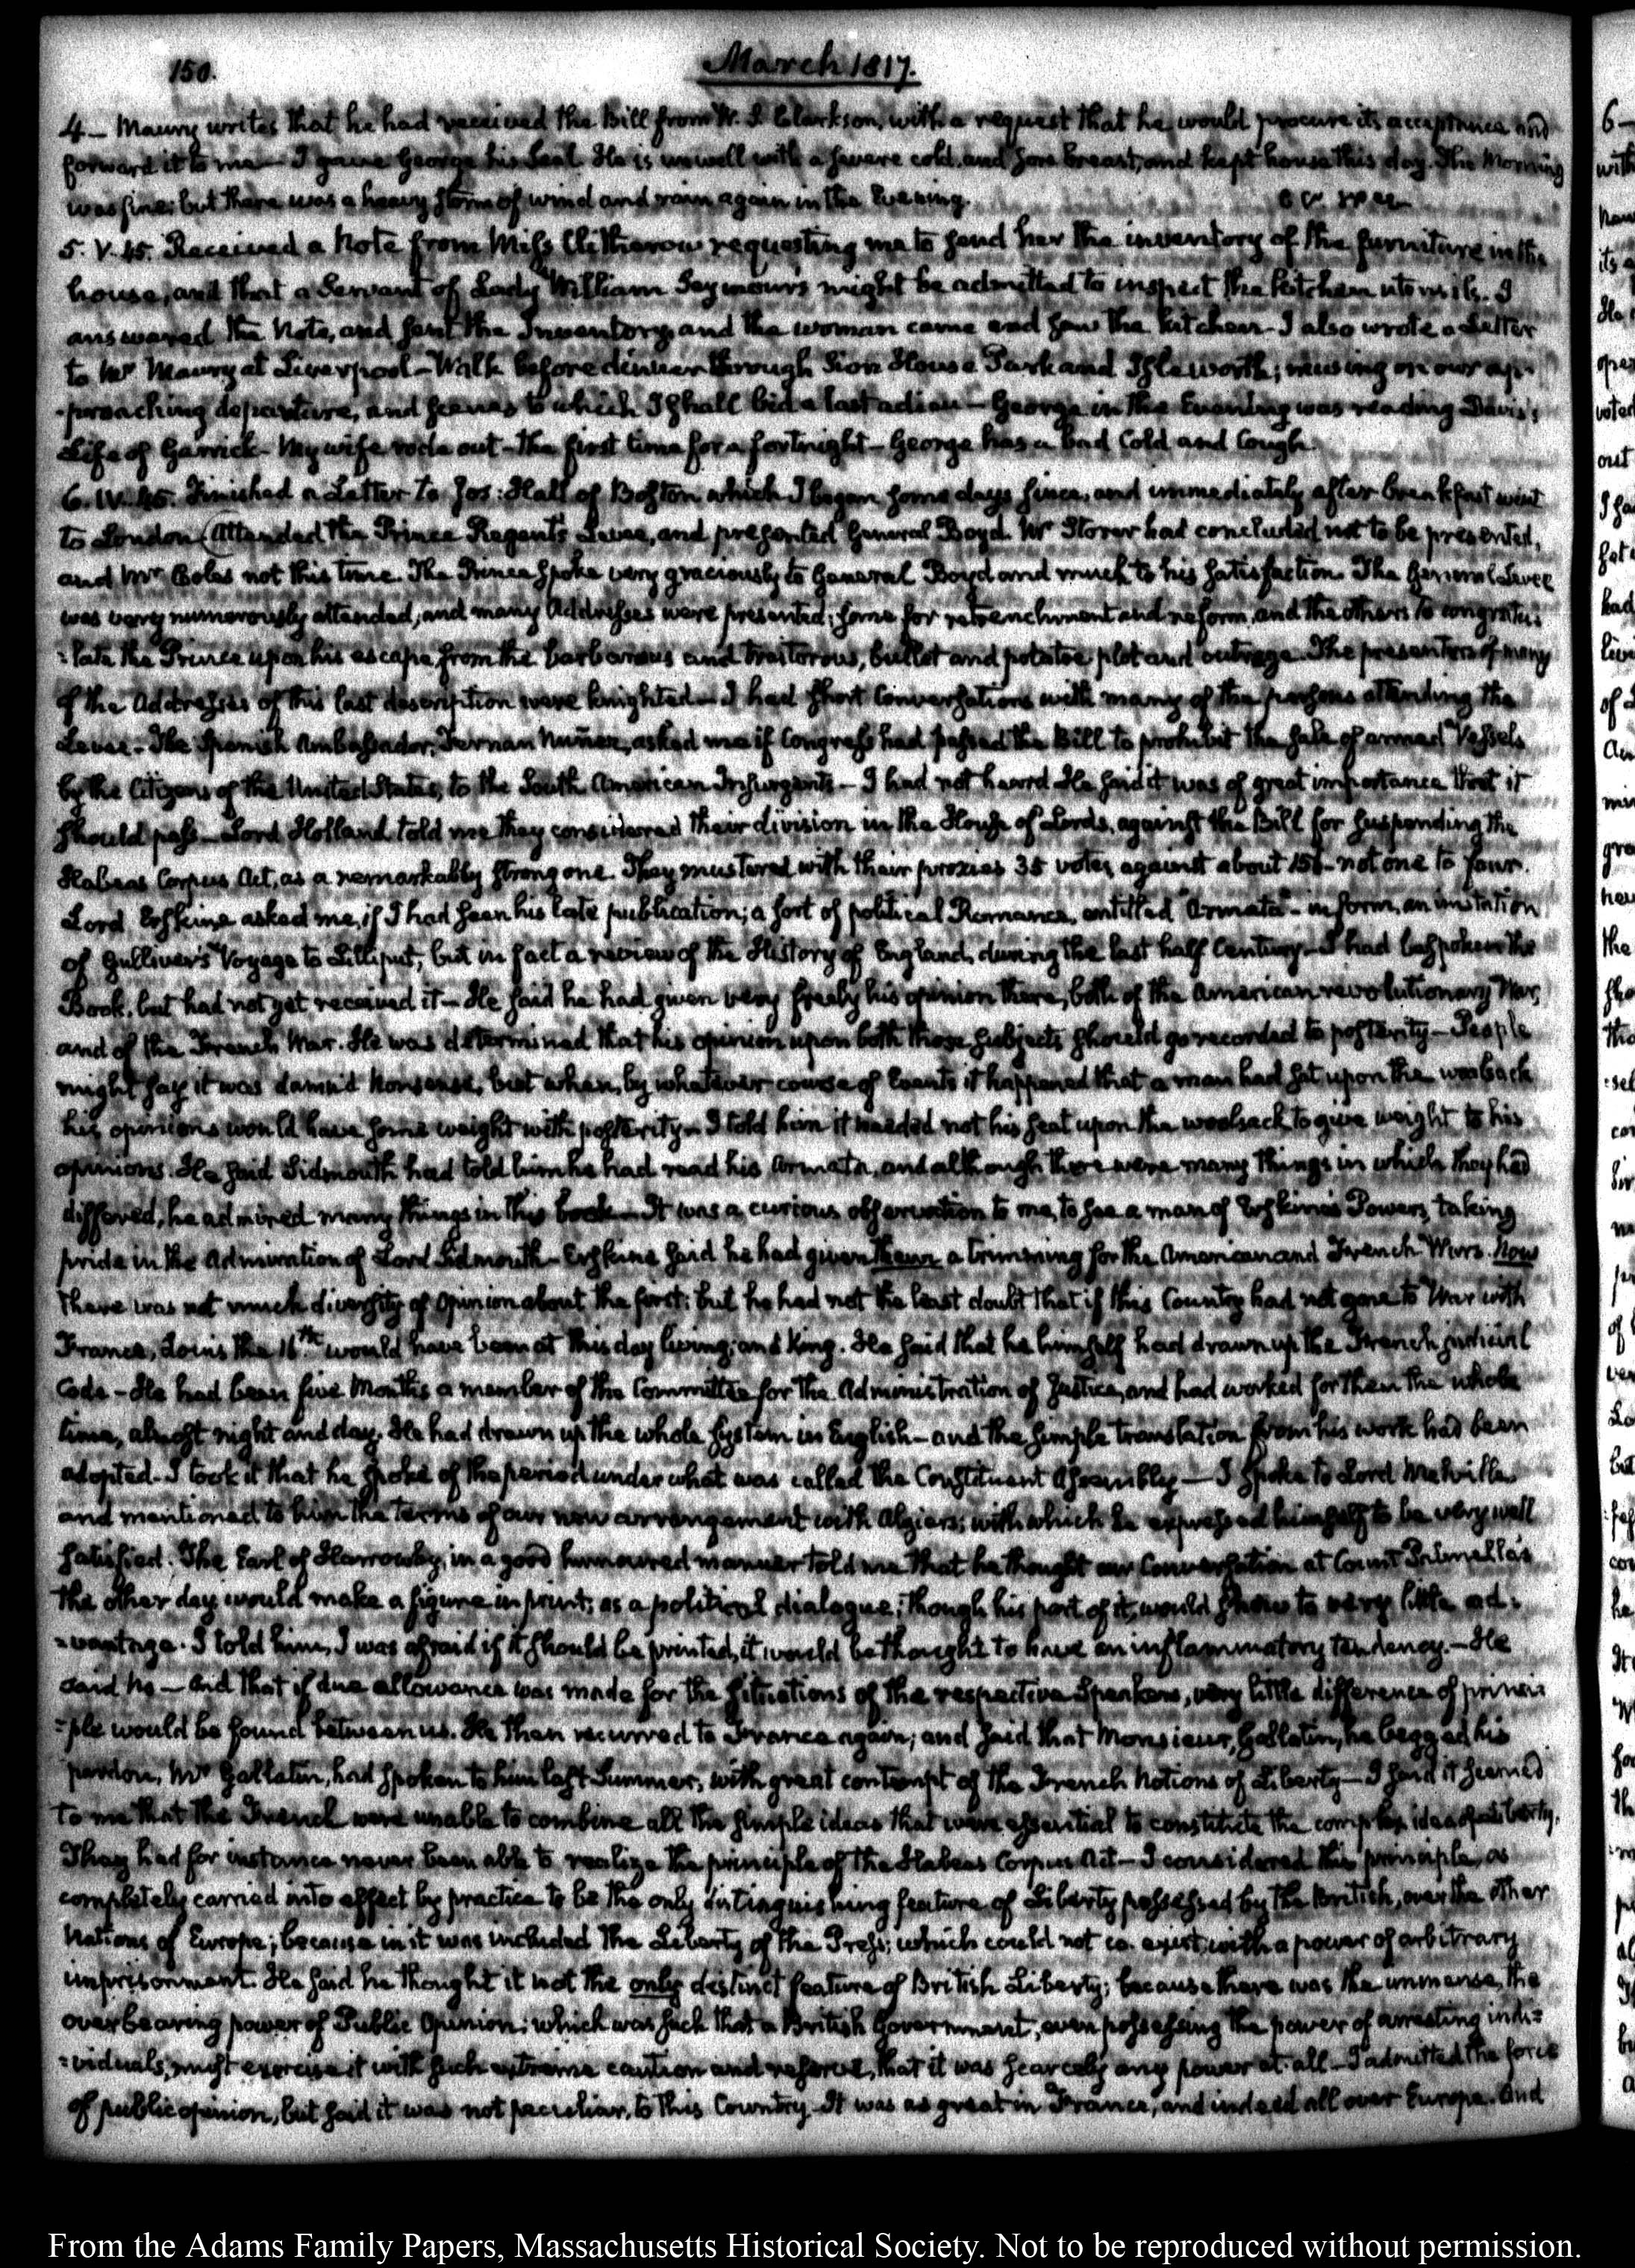 150.
March 1817.
4 — Maury writes that he had received the Bill from W. S. Clarkson, with a request that he would procure its acceptance and
forward it to me — I gave George his Seal. He is unwell with a severe cold, and sore breast, and kept house this day. The Morning
was fine; but there was a heavy storm of wind and rain again in the Evening.
5. V.45. Received a Note from Miss Clitherow requesting me to send her the inventory of the furniture in the
house, and that a Servant of Lady William Seymour's might be admitted to inspect the kitchen utensils. I
answered the Note, and sent the Inventory, and the woman came and saw the kitchen — I also wrote a Letter
to Mr Maury at Liverpool — Walk before dinner through Sion House Park and Isleworth; musing on our ap-
-proaching departure, and scenes to which I shall bid a last adieu — George in the Evening was reading Davis's
Life of Garrick — My wife rode out — the first time for a fortnight — George has a bad Cold and Cough.
6. IV.45. Finished a Letter to Jos: Hall of Boston which I began some days since, and immediately after breakfast went
to London. Attended the Prince Regent's Levee, and presented General Boyd. Mr Storer had concluded not to be presented,
and Mr Coles not this time. The Prince spoke very graciously to General Boyd and much to his satisfaction. The General Levee
was very numerously attended, and many Addresses were presented; some for retrenchment and reform, and the others to congratu:
:late the Prince upon his escape from the barbarous and traitorous, bullet and potatoe plot and outrage. The presenters of many
of the Addresses of this last description were knighted — I had short Conversations with many of the persons attending the
Levee — The Spanish Ambassador, Fernan Nuñez, asked me if Congress had passed the Bill to prohibit the sale of armed Vessels
by the Citizens of the United States, to the South American Insurgents — I had not heard. He said it was of great importance that it
should pass — Lord Holland told me they considered their division in the House of Lords, against the Bill for suspending the
Habeas Corpus Act, as a remarkably strong one. They mustered with their proxies 35 votes against about 150 — not one to four.
Lord Erskine asked me, if I had seen his late publication; a sort of political Romance, entitled "Armata" — in form, an imitation
of Gulliver's Voyage to Lilliput; but in fact a review of the History of England, during the last half Century — I had bespoken the
Book, but had not yet received it — He said he had given very freely his opinion there, both of the American revolutionary War,
and of the French War. He was determined that his opinion upon both those subjects should go recorded to posterity — People
might say it was damn'd Nonsense, but when, by whatever course of Events it happened that a man had sat upon the woolsack
his opinions would have some weight with posterity — I told him it needed not his seat upon the woolsack to give weight to his
opinions. He said Sidmouth had told him he had read his Armata, and although there were many things in which they had
differed, he admired many things in this book — It was a curious observation to me, to see a man of Erskine's Powers, taking
pride in the Admiration of Lord Sidmouth — Erskine said he had given them a trimming for the American and French Wars. Now
there was not much diversity of opinion about the first; but he had not the least doubt that if this Country had not gone to War with
France, Louis the 16th would have been at this day living, and King. He said that he himself had drawn up the French judicial
Code — He had been five Months a member of the Committee for the Administration of Justice, and had worked for them the whole
time, almost night and day. He had drawn up the whole system in English — and the simple translation from his work had been
adopted — I took it that he spoke of the period under what was called the Constituent Assembly — I spoke to Lord Melville
and mentioned to him the terms of our new arrangement with Algiers; with which he expressed himself to be very well
satisfied. The Earl of Harrowby, in a good humoured manner told me that he thought our Conversation at Count Palmella's
the other day would make a figure in print; as a political dialogue; though his part of it, would shew to very little ad:
:vantage. I told him, I was afraid if it should be printed, it would be thought to have an inflammatory tendency. — He
said No — and that if due allowance was made for the situations of the respective Speakers, very little difference of princi:
:ple would be found between us. He then recurred to France again; and said that Monsieur, Gallatin, he begged his
pardon, Mr Gallatin, had spoken to him last Summer, with great contempt of the French Notions of Liberty — I said it seemed
to me that the French were unable to combine all the simple ideas that were essential to constitute the complex idea of Liberty.
They had for instance never been able to realize the principle of the Habeas Corpus Act — I considered this principle, as
completely carried into effect by practice to be the only distinguishing feature of Liberty possessed by the British, over the other
Nations of Europe; because in it was included the Liberty of the Press; which could not co-exist with a power of arbitrary
imprisonment. He said he thought it not the only distinct feature of British Liberty; because there was the immense, the
overbearing power of Public Opinion; which was such that a British Government, even possessing the power of arresting indi:
:viduals, must exercise it with such extreme caution and reserve, that it was scarcely any power at all — I admitted the force
of public opinion, but said it was not peculiar, to this Country — It was as great in France, and indeed all over Europe. And
From the Adams Family Papers, Massachusetts Historical Society. Not to be reproduced without permission.